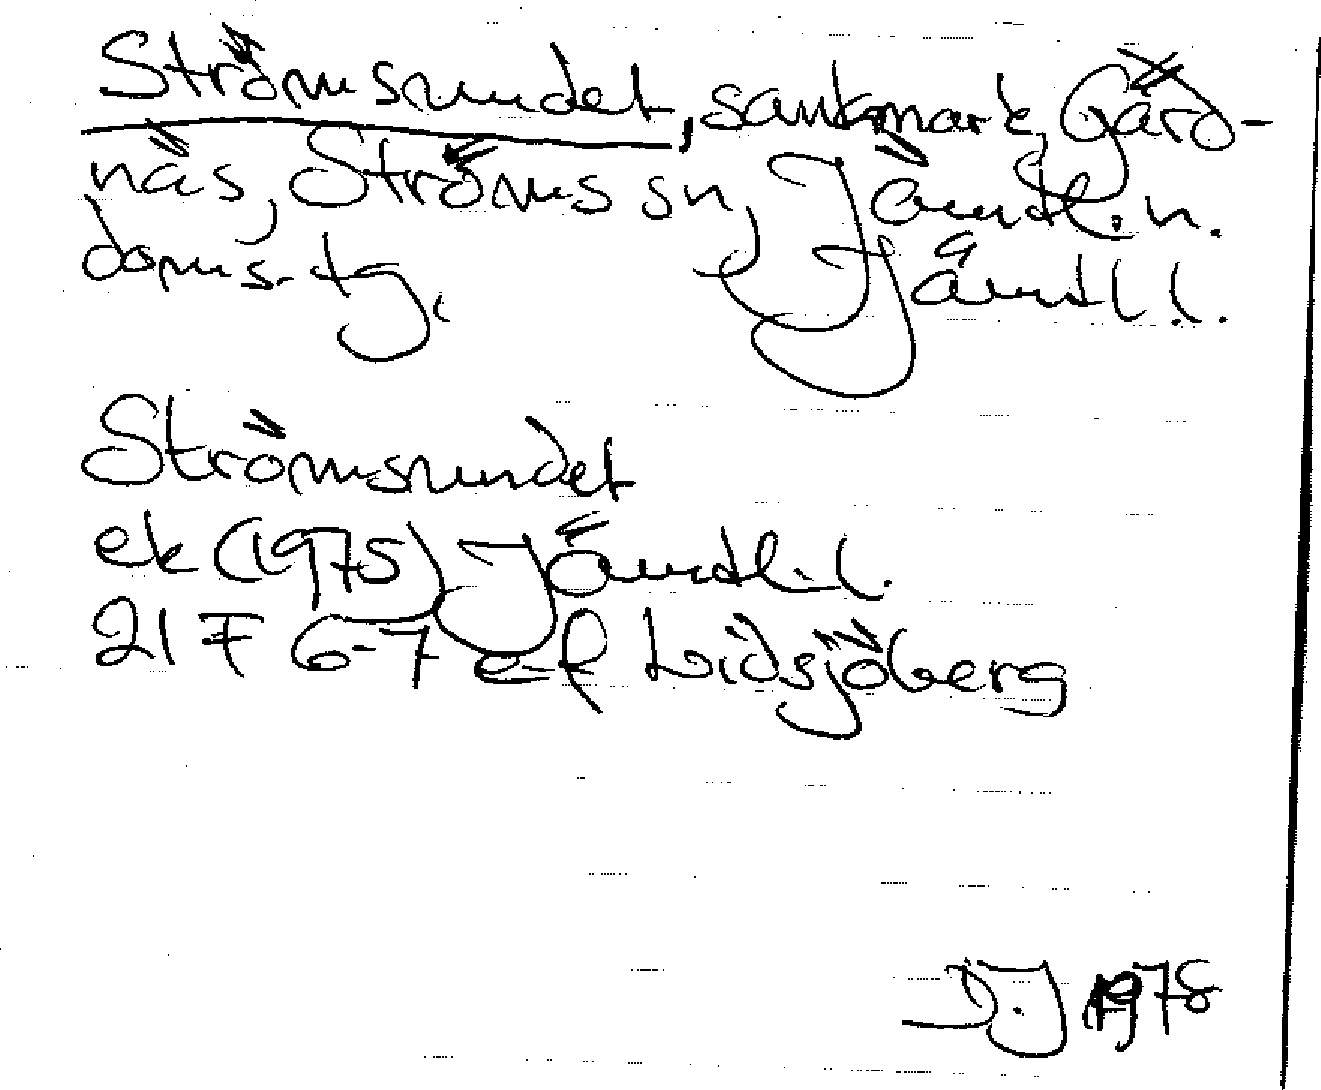 Strömsundet, sankmark, Gärd-
näs, Ströms sn, Jämtl. n.
doms-tg, Jämtl l.
Strömsundet
ek (1975) Jämtl. l.
21 F 6-7 e-f Lidsjöberg
D.J 1978